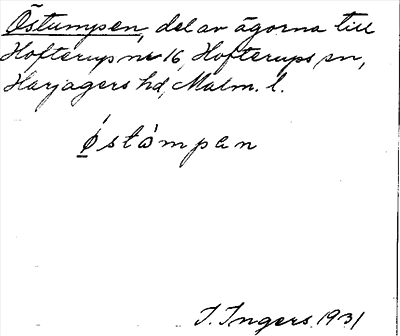 Östumpen, del av ägorna till
Hofterup nr 16, Hofterups sn,
Harjagers hd, Malm. l.
ǿstȧmpan
I. Ingers. 1931